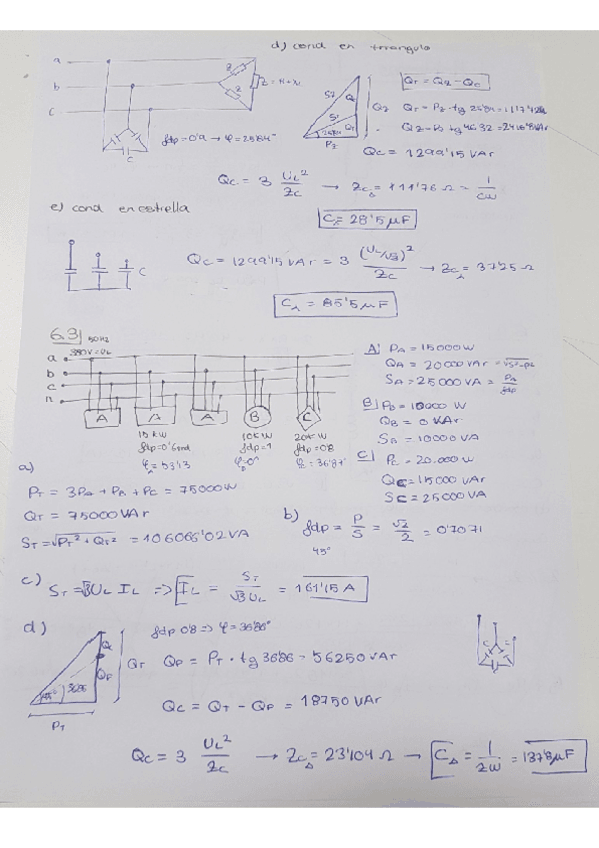 d) cond en triangulo
a
b
c
Z
Z
Z = R+Xj
C
fdp = 0'9 → φ = 25'84°
S2
S1
Q
QT
25'84
PZ
QZ
QT = QZ - QC
QT = PZ · tg 25'84 = 1117'42
QZ = P · tg 46'32 = 2416'8 VAr
QC = 1299'15 VAr
QC = 3 UL²/ZC → ZC△ = 111'76 Ω = 1/CW
C = 28'5 μF
e) cond en estrella
C
QC = 1299'15 VAr = 3 (UL/√3)²/ZC → ZC = 37'25 Ω
C = 85'5 μF
6.3
50Hz
380V = UL
a
b
c
n
A
A
A
B
C
15 kW
fdp = 0'6 ind
φ = 53'13
10 kW
fdp = 1
φ = 0°
20 kW
fdp = 0'8
φ = 36'87
A) PA = 15000 W
QA = 20000 VAr = √S²-P²
SA = 25000 VA = PA/fdp
B) PB = 10000 W
QB = 0 VAr
SB = 10000 VA
C) PC = 20.000 W
QC = 15000 VAr
SC = 25000 VA
a)
PT = 3PA + PB + PC = 75000 W
QT = 75000 VAr
ST = √PT² + QT² = 106066'02 VA
b) fdp = P/S = √2/2 = 0'7071
45°
c) ST = √3 UL IL => IL = ST/√3 UL = 161'15 A
d)
fdp 0'8 => φ = 36'86°
QC
QP
QT
45°
36'86
PT
QP = PT · tg 36'86 = 56250 VAr
QC = QT - QP = 18750 VAr
QC = 3 UL²/ZC → ZC△ = 23'104 Ω → C△ = 1/ZW = 137'8 μF